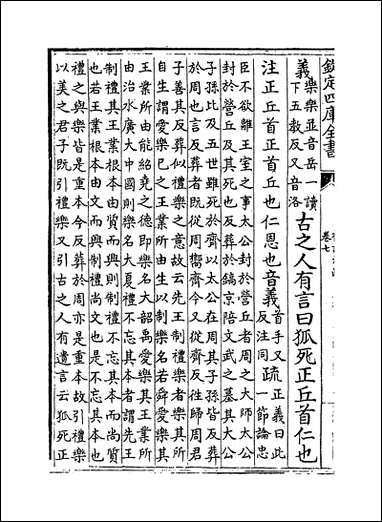 欽定四庫全書
卷七
義樂樂並音岳一讀下五教反又音洛古之人有言曰狐死正丘首仁也
注正丘首正丘也仁恩也音義首手又反注同疏正義曰此一節論忠
臣不欲離王室之事太公封於營丘者周之大師太公
封於營丘及其死也反葬於鎬京陪文武之墓其大公
子孫比及五世雖死於齊以太公在周其子孫皆反葬
於周也言反葬者既從周嚮齊今又從齊反往歸周君
子善其反葬似禮樂之意故云先王制禮樂者樂其所
自生謂愛樂巳之王業所由生以制樂名若舜愛樂其
王業所由能紹堯之德即樂名大韶禹愛樂其王業所
由治水廣大中國則樂名大夏禮不忘其本者謂先王
制禮其王業根本由質而興則制禮不忘其本而尚質
也若王業根本由文而興制禮尚文也是不忘其本也
禮之與樂皆是重本今反葬於周亦是重本故引禮樂
以美之君子既引禮樂又引古之人有遺言云狐死正